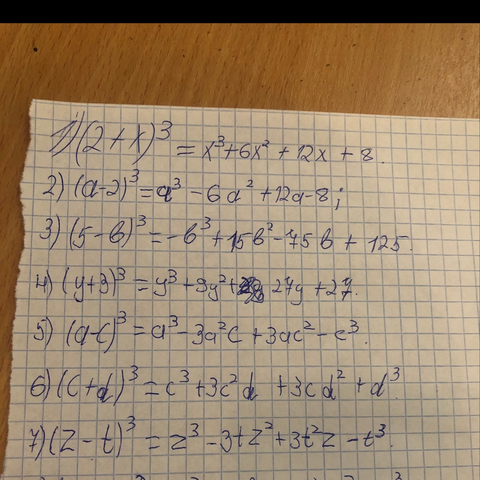 1) (2+x)³ = x³+6x²+12x+8.
2) (a-2)³=a³-6a²+12a-8;
3) (5-в)³=-в³+15в²-75в+125.
4) (y+3)³=y³+9y²+27y+27.
5) (a-c)³=a³-3a²c+3ac²-c³.
6) (c+d)³=c³+3c²d+3cd²+d³.
7) (z-t)³=z³-3tz²+3t²z-t³.